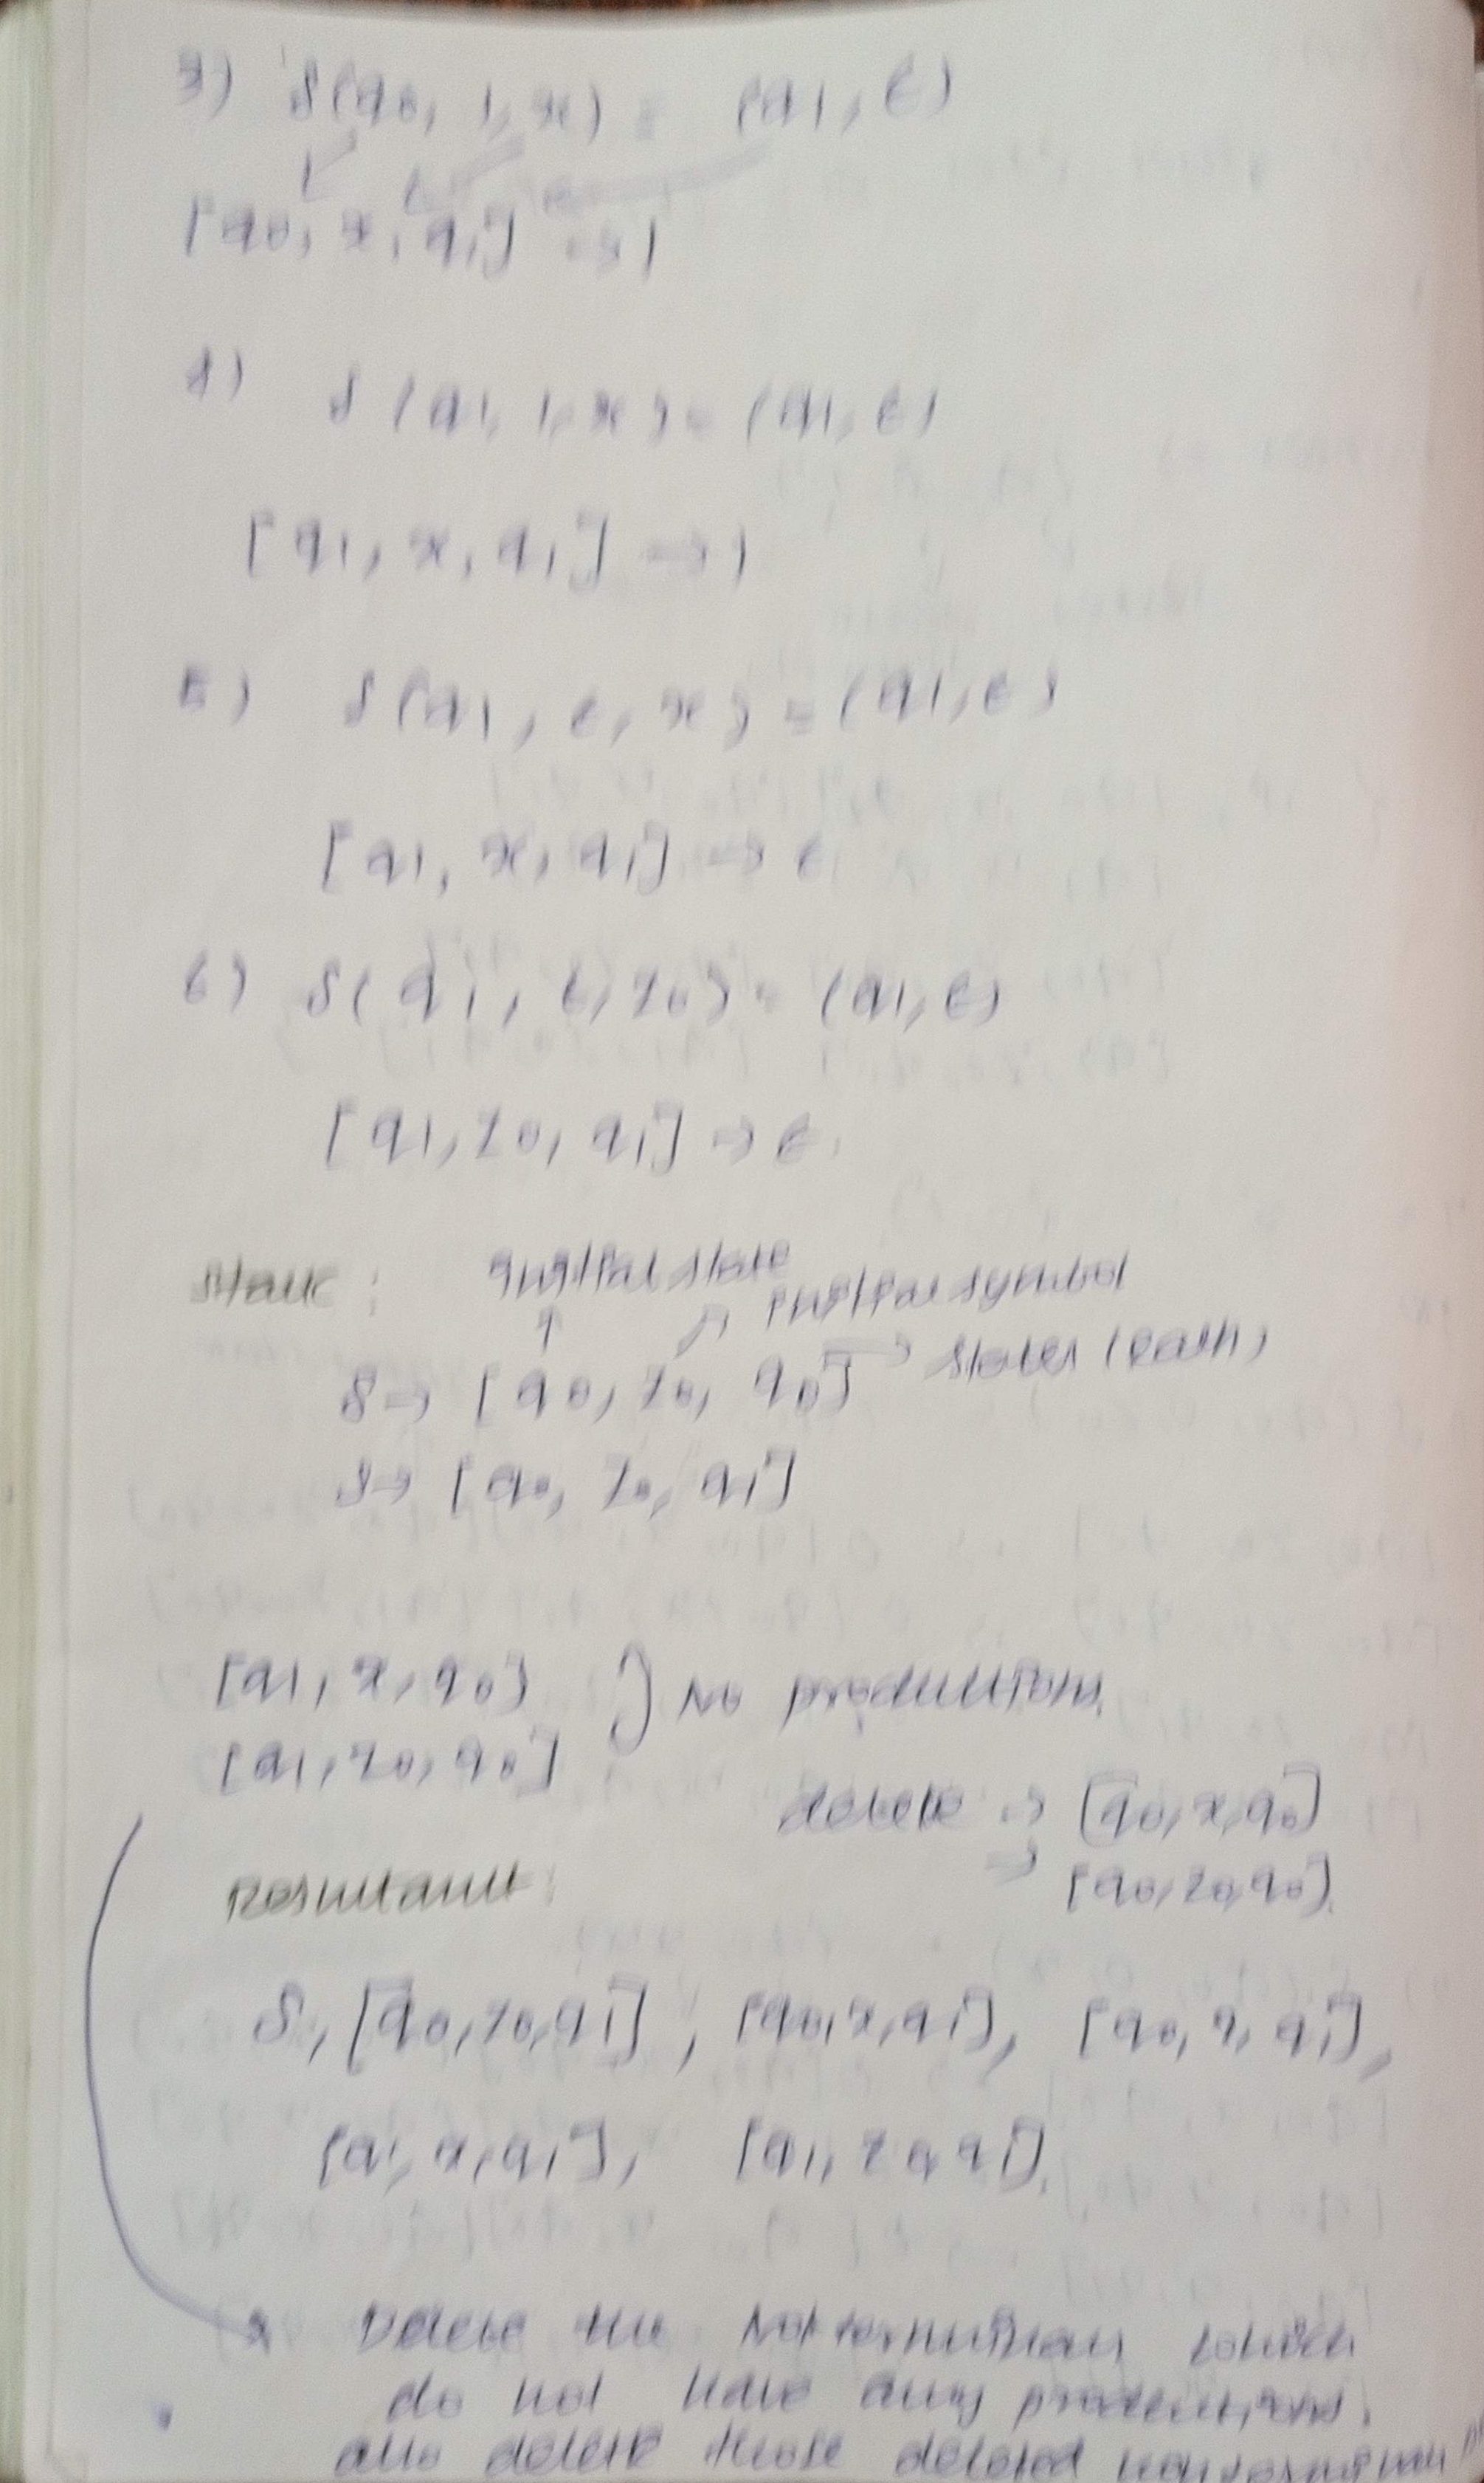 3) δ(q0, 1, x) = (q1, ε)
[q0, x, q1] → 1
4) δ(q1, 1, x) = (q1, ε)
[q1, x, q1] → 1
5) δ(q1, ε, x) = (q1, ε)
[q1, x, q1] → ε
6) δ(q1, ε, z0) = (q1, ε)
[q1, z0, q1] → ε
Initial state
↑ ↗ initial symbol
S → [q0, z0, q0] → states (path)
S → [q0, z0, q1]
[q1, x, q0] } No productions.
[q1, z0, q0]
delete → [q0, x, q0]
→ [q0, z0, q0].
Resultant:
S, [q0, z0, q1], [q0, x, q1], [q0, x, q1],
[q1, x, q1], [q1, z0, q1].
Delete the which
do not have any productions.
also delete those deleted